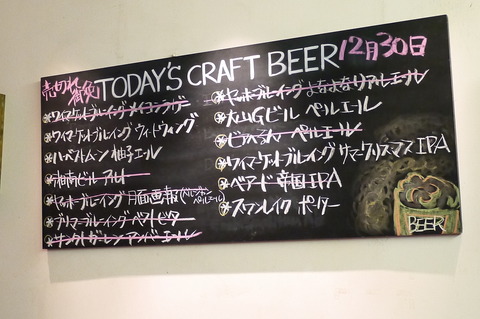 売切れ御免 TODAY'S CRAFT BEER 12月30日
ワイマーケットブルーイング メイヨンラガー
ワイマーケットブルーイング ウィートウィング
ハーベストムーン 柚子エール
湘南ビール アルト
ヤッホーブルーイング 月面画報 (ベルジャンペールエール)
プリマーブルーイング ベストビター
サンクトガーレン アンバーエール
ヤッホーブルーイング よなよなリアルエール
大山Gビール ペールエール
ビアへるん ペールエール
ワイマーケットブルーイング サマークリスマス IPA
ベアード 帝国IPA
スワンレイク ポーター
BEER